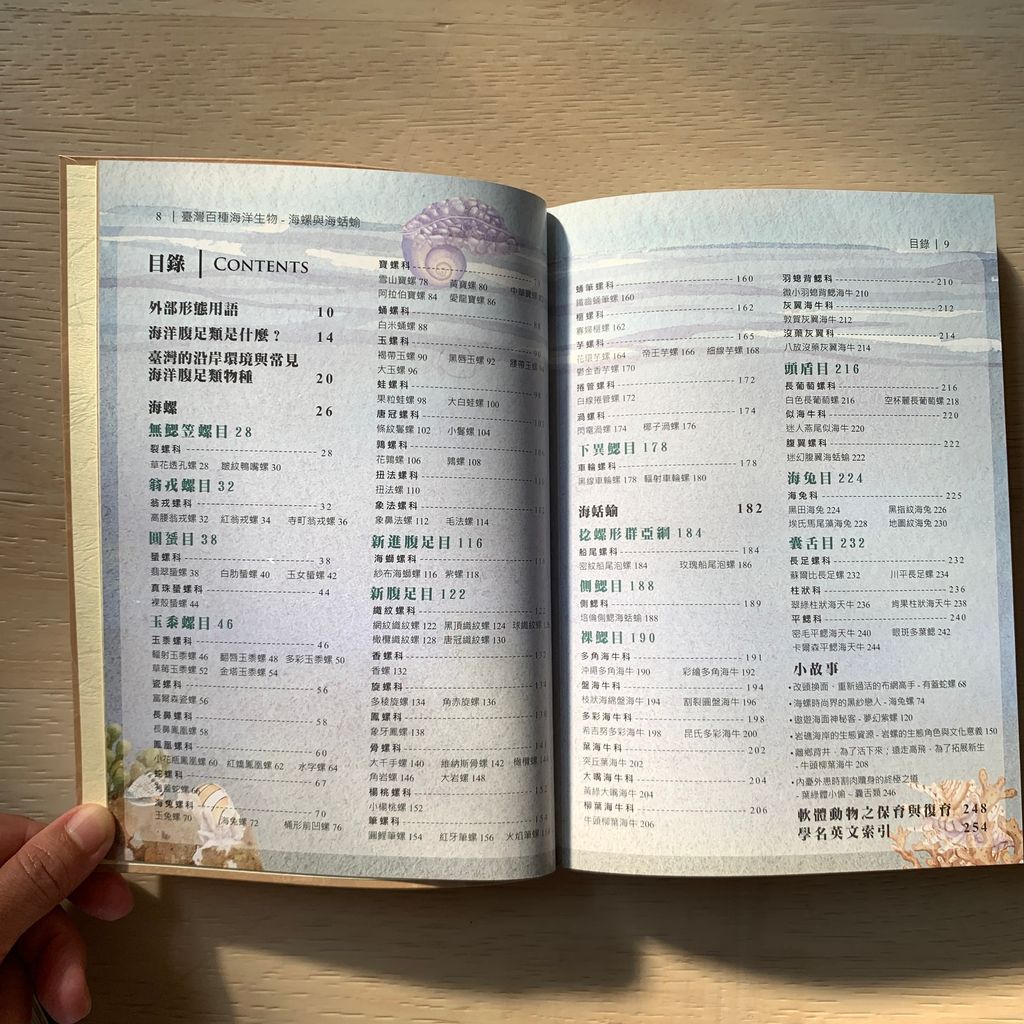 8 | 臺灣百種海洋生物 - 海螺與海蛞蝓
目錄 | CONTENTS
外部形態用語 10
海洋腹足類是什麼？ 14
臺灣的沿岸環境與常見
海洋腹足類物種 20
海螺 26
無鰓笠螺目 28
裂螺科 28
草花透孔螺 28 皺紋鴨嘴螺 30
翁戎螺目 32
翁戎螺科 32
高腰翁戎螺 32 紅翁戎螺 34 寺町翁戎螺 36
圓蜑目 38
蜑螺科 38
翡翠蜑螺 38 白肋蜑螺 40 玉女蜑螺 42
真珠蜑螺科 44
裸殼蜑螺 44
玉黍螺目 46
玉黍螺科 46
輻射玉黍螺 46 翻唇玉黍螺 48 多彩玉黍螺 50
草莓玉黍螺 52 金塔玉黍螺 54
瓷螺科 56
高爾森瓷螺 56
長鼻螺科 58
長鼻鳳凰螺 58
鳳凰螺科 60
小花瓶鳳凰螺 60 紅嬌鳳凰螺 62 水字螺 64
蛇螺科 67
有蓋蛇螺 66
海兔螺科 70
玉兔螺 70 海兔螺 72 桶形前凹螺 76
寶螺科
雪山寶螺 78 黃寶螺 80 中華寶螺
阿拉伯寶螺 84 愛龍寶螺 86
蛹螺科 88
白米蛹螺 88
玉螺科 90
褐帶玉螺 90 黑唇玉螺 92 腰帶玉螺
大玉螺 96
蛙螺科 98
果粒蛙螺 98 大白蛙螺 100
唐冠螺科
條紋鬘螺 102 小鬘螺 104
鶉螺科 106
花鶉螺 106 鶉螺 108
扭法螺科 110
扭法螺 110
象法螺科 112
象鼻法螺 112 毛法螺 114
新進腹足目 116
海螄螺科 116
紗布海螄螺 116 紫螺 118
新腹足目 122
織紋螺科 122
網紋織紋螺 122 黑頂織紋螺 124 球織紋螺
橄欖織紋螺 128 唐冠織紋螺 130
香螺科 132
香螺 132
旋螺科 134
多稜旋螺 134 角赤旋螺 136
鳳螺科 138
象牙鳳螺 138
骨螺科 141
大千手螺 140 維納斯骨螺 142 橄欖螺
角岩螺 146 大岩螺 148
楊桃螺科
小楊桃螺 152
筆螺科 154
圓鯉筆螺 154 紅牙筆螺 156 火焰筆螺
目錄 | 9
蛹筆螺科 160
鐵齒蛹筆螺 160
榧螺科 162
寡婦榧螺 162
芋螺科 165
花環芋螺 164 帝王芋螺 166 細線芋螺 168
鬱金香芋螺 170
捲管螺科 172
白線捲管螺 172
渦螺科 174
閃電渦螺 174 椰子渦螺 176
下異鰓目 178
車輪螺科 178
黑線車輪螺 178 輻射車輪螺 180
海蛞蝓 182
捻螺形群亞綱 184
船尾螺科 184
密紋船尾泡螺 184 玫瑰船尾泡螺 186
側鰓目 188
側鰓科 189
培倫側鰓海蛞蝓 188
裸鰓目 190
多角海牛科 191
沖繩多角海牛 190 彩繪多角海牛 192
盤海牛科 194
枝狀海綿盤海牛 194 割裂圓盤海牛 196
多彩海牛科 198
希吉努多彩海牛 198 昆氏多彩海牛 200
葉海牛科 202
突丘葉海牛 202
大嘴海牛科 204
黃綠大嘴海牛 204
柳葉海牛科 206
牛頭柳葉海牛 206
羽螅背鰓科 210
微小羽螅背鰓海牛 210
灰翼海牛科 212
敦賀灰翼海牛 212
沒藥灰翼科 214
八放沒藥灰翼海牛 214
頭盾目 216
長葡萄螺科 216
白色長葡萄螺 216 空杯麗長葡萄螺 218
似海牛科 220
迷人燕尾似海牛 220
腹翼螺科 222
迷幻腹翼海蛞蝓 222
海兔目 224
海兔科 225
黑田海兔 224 黑指紋海兔 226
埃氏馬尾藻海兔 228 地圖紋海兔 230
囊舌目 232
長足螺科 232
蘇爾比長足螺 232 川平長足螺 234
柱狀科 236
翠綠柱狀海天牛 236 肯果柱狀海天牛 238
平鰓科 240
密毛平鰓海天牛 240 眼斑多葉鰓 242
卡爾森平鰓海天牛 244
小故事
• 改頭換面、重新過活的布網高手 - 有蓋蛇螺 68
• 海螺時尚界的黑紗戀人 - 海兔螺 74
• 遨遊海面神秘客 - 夢幻紫螺 120
• 岩礁海岸的生態資源 - 岩螺的生態角色與文化意義 150
• 離鄉背井，為了活下來；遠走高飛，為了拓展新生
- 牛頭柳葉海牛 208
• 內憂外患時割肉贖身的終極之道
- 葉綠體小偷 ~ 囊舌類 246
軟體動物之保育與復育 248
學名英文索引 254